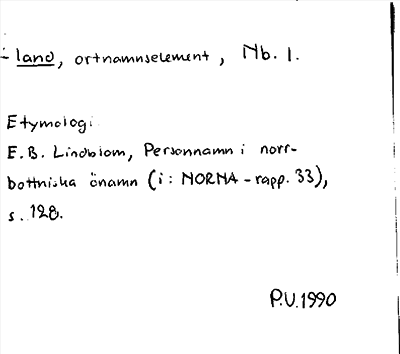 -land, ortnamnselement, Nb. 1.
Etymologi:
E.B. Lindblom, Personnamn i norr-
bottniska önamn (i: NORNA-rapp. 33),
s. 128.
P.U. 1990